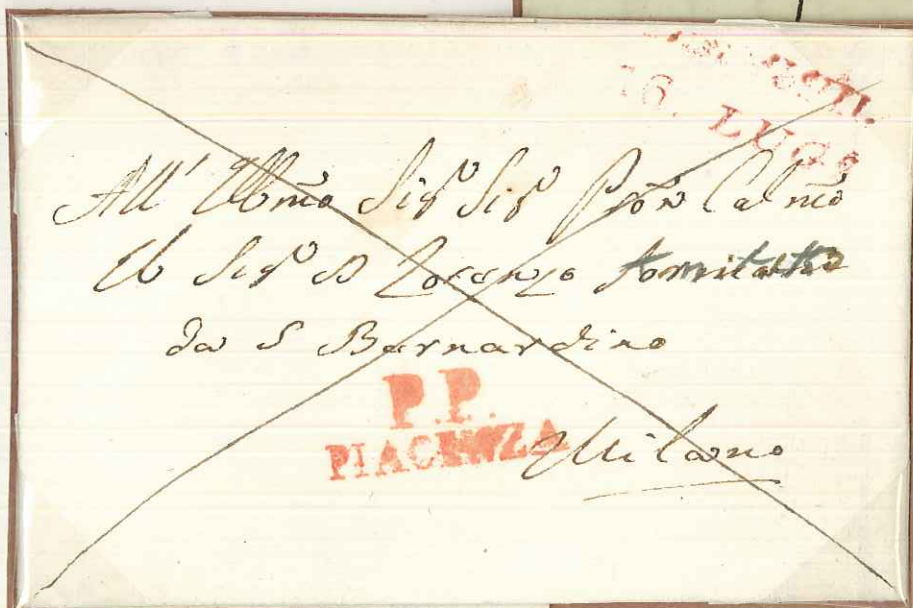 16. LUG
All' Illmo Sigr Sigr Pron Colmo
Il Sigr D Lorenzo
da S Bernardino
P.P.
PIACENZA
Milano